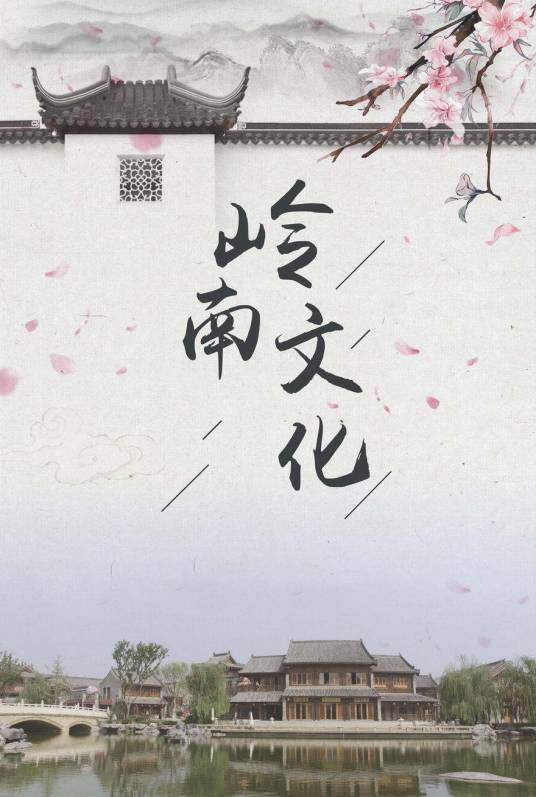 岭南
文化